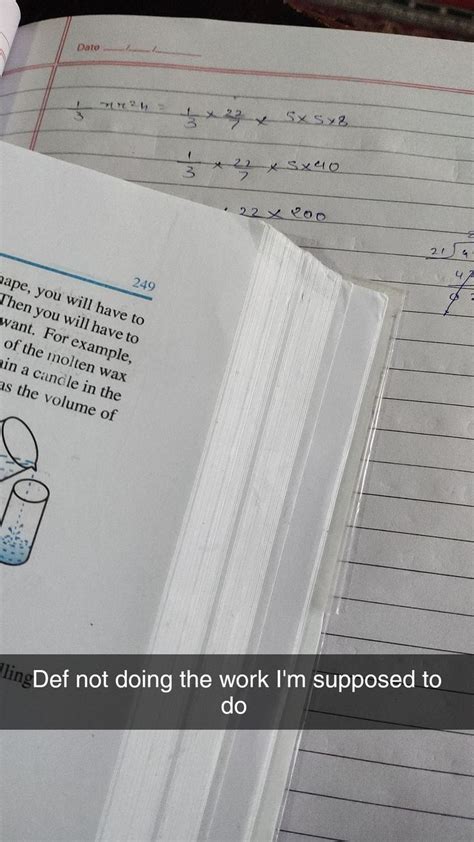 Date
1/3 πr²h = 1/3 × 22/7 × 5×5×8
1/3 × 22/7 × 5×40
22 × 200
21
249
hape, you will have to
Then you will have to
want. For example,
of the molten wax
ain a candle in the
as the volume of
lling
Def not doing the work I'm supposed to
do